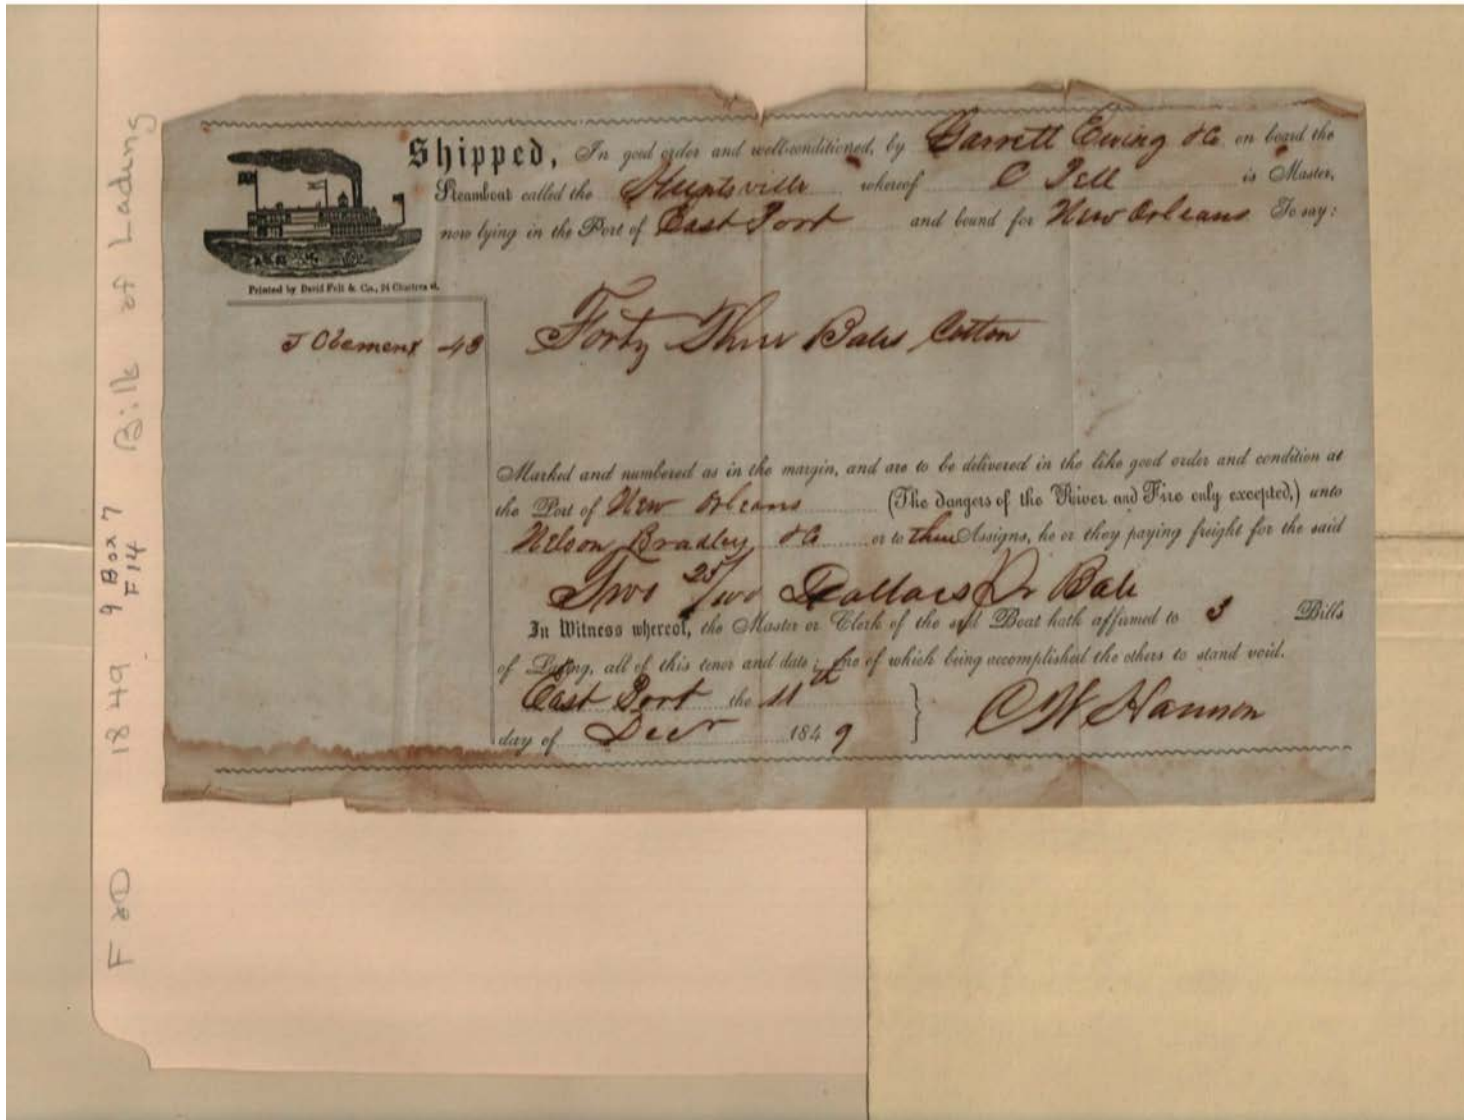 Shipped, In good order and well-conditioned, by Garrett Ewing & Co on board the
Steamboat called the Huntsville whereof C Fell is Master,
now lying in the Port of East Port and bound for New Orleans To say:
Printed by David Felt & Co., 24 Chartres st.
J Clement 43
Forty Three Bales Cotton
Marked and numbered as in the margin, and are to be delivered in the like good order and condition at
the Port of New Orleans (The dangers of the River and Fire only excepted,) unto
Nelson Bradley & Co or to their Assigns, he or they paying freight for the said
Two 25/100 Dollars Pr Bale
In Witness whereof, the Master or Clerk of the said Boat hath affirmed to 3 Bills
of Lading, all of this tenor and date; one of which being accomplished the others to stand void.
East Port the 11th
day of Decr 1849
C W Hannon
F 20 1849 9 Box 7 Bill of Ladung
F14